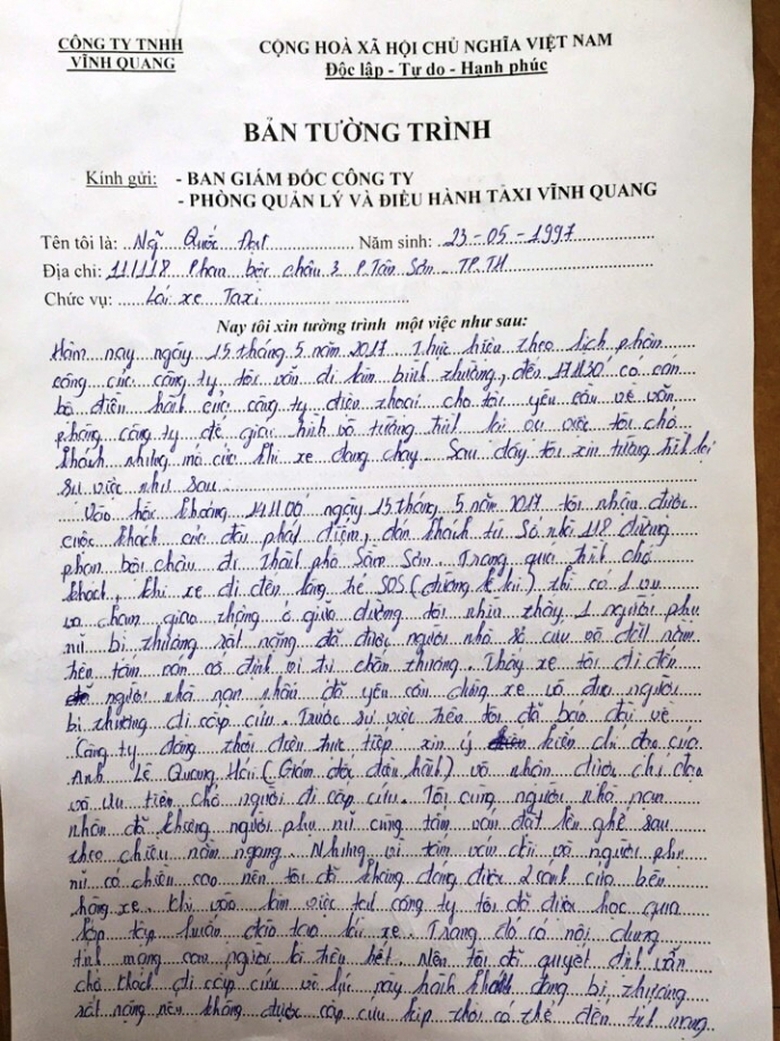 CÔNG TY TNHH
VĨNH QUANG
CỘNG HOÀ XÃ HỘI CHỦ NGHĨA VIỆT NAM
Độc lập - Tự do - Hạnh phúc
BẢN TƯỜNG TRÌNH
Kính gửi: - BAN GIÁM ĐỐC CÔNG TY
- PHÒNG QUẢN LÝ VÀ ĐIỀU HÀNH TAXI VĨNH QUANG
Tên tôi là: Ngô Quốc Đạt Năm sinh: 23-05-1997
Địa chỉ: 11/118 Phan bội châu 3 P.Tân Sơn TP.TH
Chức vụ: Lái xe Taxi
Nay tôi xin tường trình một việc như sau:
Hôm nay ngày 15 tháng 5 năm 2017. Thực hiện theo lịch phân
công của công ty tôi vẫn đi làm bình thường, đến 17H30' có cán
bộ điều hành của công ty điện thoại cho tôi yêu cầu về văn
phòng công ty để giải trình và tường trình lại sự việc tôi chở
khách nhưng mở cửa khi xe đang chạy. Sau đây tôi xin tường trình lại
sự việc như sau
Vào hồi khoảng 14H00' ngày 15 tháng 5 năm 2017 tôi nhận được
cuốc khách của đài phát điểm, đón khách từ Số nhà 118 đường
phan bội châu đi Thành phố Sầm Sơn. Trong quá trình chở
khách, khi xe đi đến làng trẻ SOS (đường lê lai) thì có 1 vụ
va chạm giao thông ở giữa đường tôi nhìn thấy 1 người phụ
nữ bị thương rất nặng đã được người nhà sơ cứu và đặt nằm
trên tấm ván cố định vị trí chấn thương. Thấy xe tôi đi đến
người nhà nạn nhân đã yêu cầu dừng xe và đưa người
bị thương đi cấp cứu. Trước sự việc trên tôi đã báo đài về
Công ty đồng thời điện trực tiếp xin ý kiến chỉ đạo của
Anh Lê Quang Hải (Giám đốc điều hành) và nhận được chỉ đạo
và ưu tiên chở người đi cấp cứu. Tôi cùng người nhà nạn
nhân đã khiêng người phụ nữ cùng tấm ván đặt lên ghế sau
theo chiều nằm ngang. Nhưng vì tấm ván dài và người phụ
nữ có chiều cao nên tôi đã không đóng được 2 cánh cửa bên
hông xe. Khi vào làm việc tại công ty tôi đã được học qua
lớp tập huấn đào tạo lái xe. Trong đó có nội dung
tính mạng con người là trên hết. Nên tôi đã quyết định vẫn
chở khách đi cấp cứu và lúc này hành khách đang bị thương
rất nặng nếu không được cấp cứu kịp thời có thể đến tính mạng